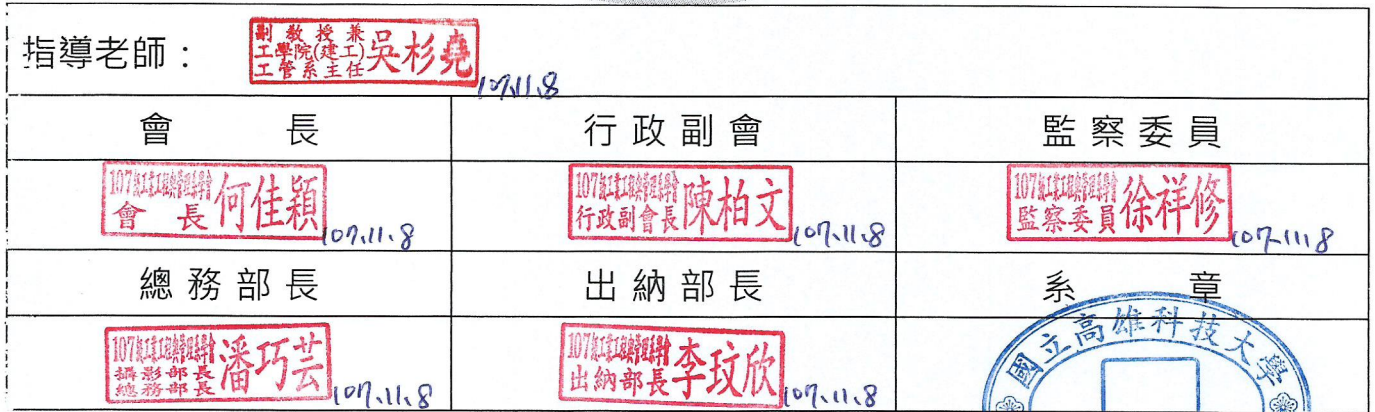 指導老師：
副教授兼
工學院(建工)
工管系主任 吳杉堯
107.11.8
會 長
行政副會
監察委員
107級工業工程與管理系學會
會 長 何佳穎
107.11.8
107級工業工程與管理系學會
行政副會長 陳柏文
107.11.8
107級工業工程與管理系學會
監察委員 徐祥修
107.11.8
總務部長
出納部長
系 章
107級工業工程與管理系學會
攝影部長
總務部長 潘巧芸
107.11.8
107級工業工程與管理系學會
出納部長 李玟欣
107.11.8
國立高雄科技大學